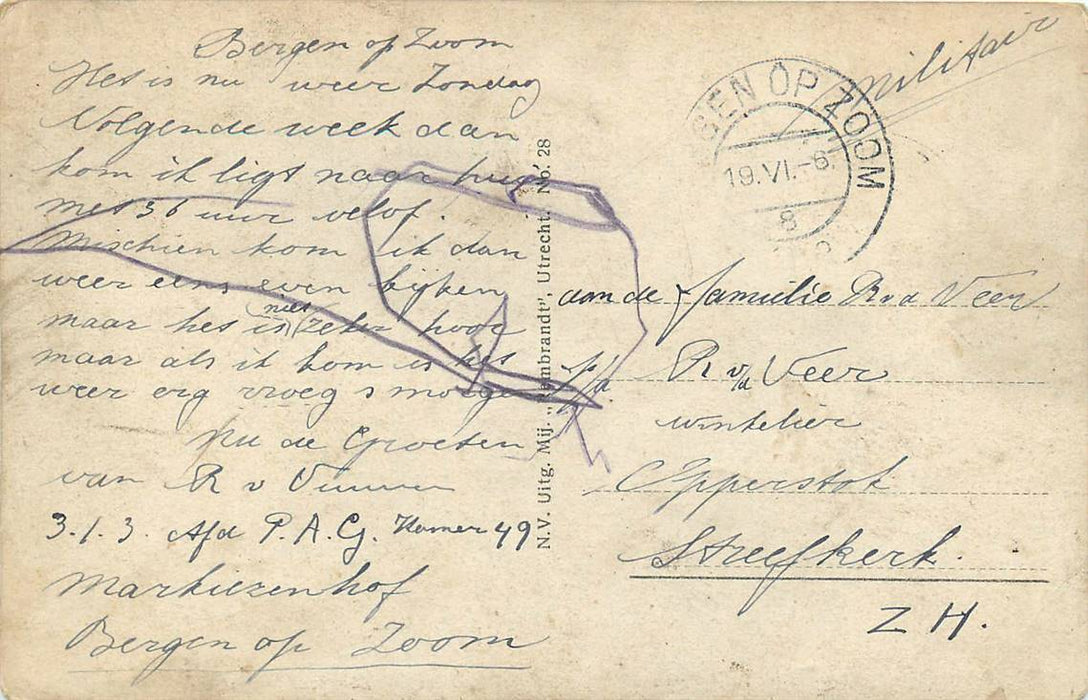 Bergen op Zoom
Het is nu weer Zondag
Volgende week dan
kom ik ligt naar huis
met 36 uur velof.
Mischien kom ik dan
weer eens even kijken
maar het is niet zeker hoor
maar als ik kom is het
weer erg vroeg s morgens
nu de Groeten
van R v
3.1.3. Afd P.A.G. Kamer 49
Markiezenhof
Bergen op Zoom
N.V. Uitg. Mij. „Rembrandt”, Utrecht. No. 28
Militair
GEN OP ZOOM
19.VI.-6.
8
aan de familie R v d Veer
p/a. R v/d Veer
winkelier
Opperstok
Streefkerk.
Z H.